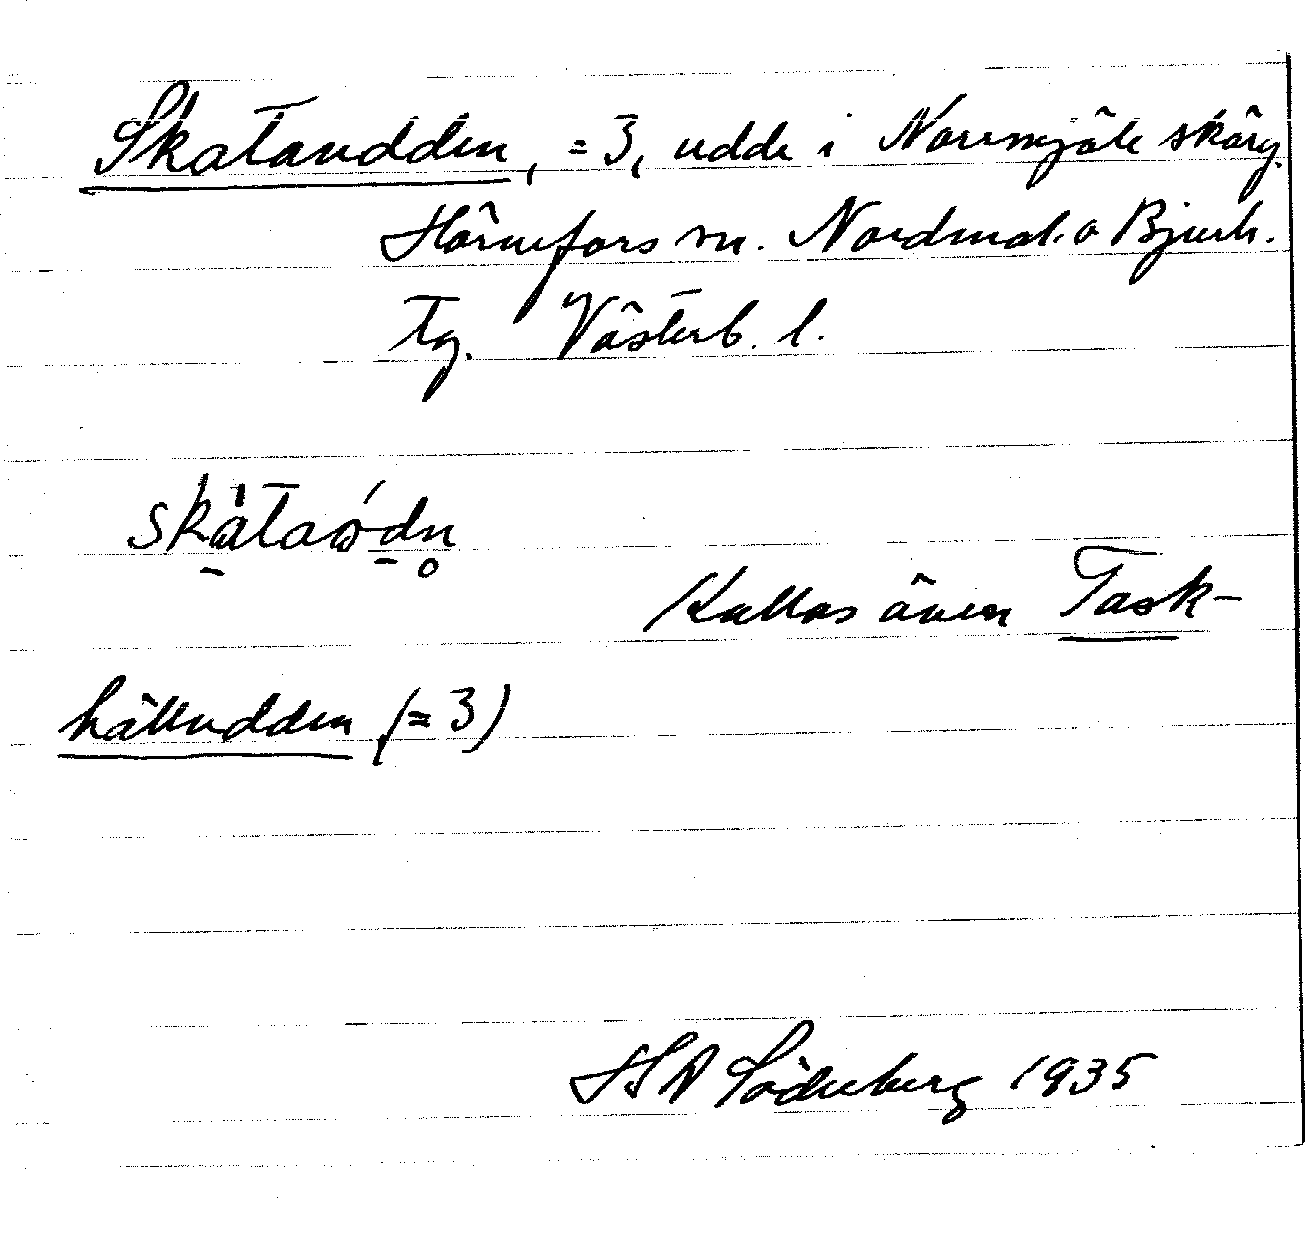 Skataudden, =3, udde i Norrmjöle skärg.
Hörnefors sn. Nordmal. o Bjurh.
tg. Västerb. l.
Kallas även Task-
hälludden (=3)
HA Söderberg 1935